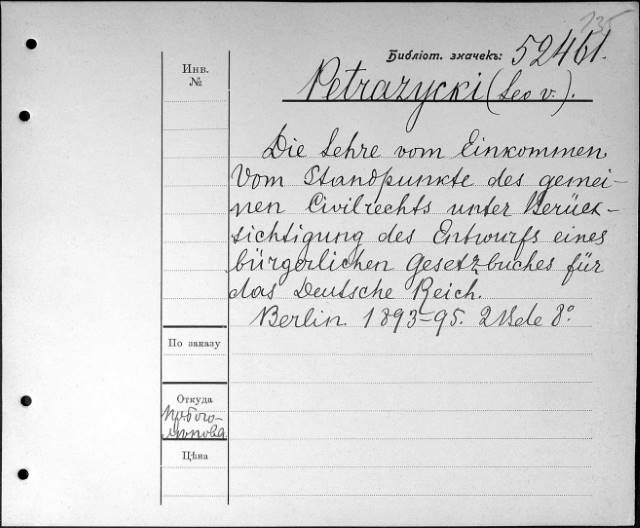 135
Библіот. значекъ: 52461.
Инв.
№
Petrazycki (Leo v.).
Die Lehre vom Einkommen
Vom Standpunkte des gemei-
nen Civilrechts unter Berück-
sichtigung des Entwurfs eines
bürgerlichen Gesetzbuches für
das Deutsche Reich.
Berlin 1893-95. 2 Bde 8º
По заказу
Откуда
Цѣна